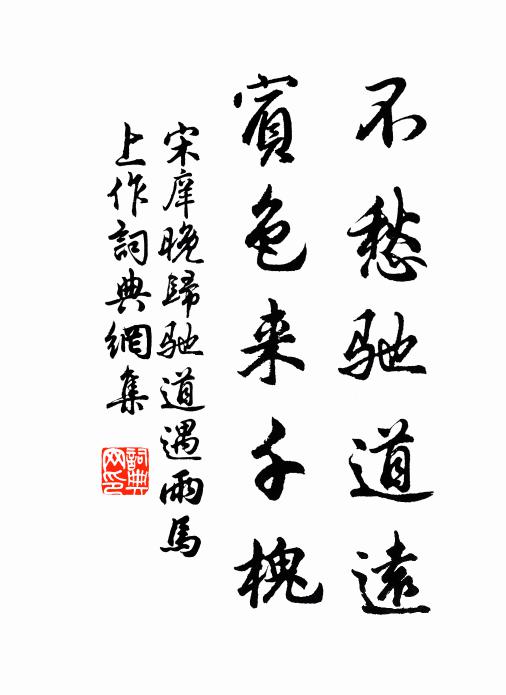 不愁馳道遠
賓色来千槐
宋庠晚歸馳道遇雨馬
上作詞典網集
詞典
网印